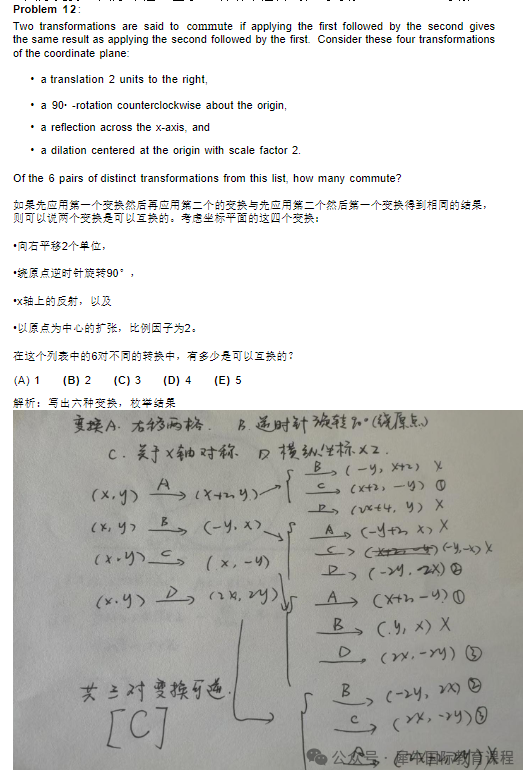 Problem 12:
Two transformations are said to commute if applying the first followed by the second gives
the same result as applying the second followed by the first. Consider these four transformations
of the coordinate plane:
• a translation 2 units to the right,
• a 90° -rotation counterclockwise about the origin,
• a reflection across the x-axis, and
• a dilation centered at the origin with scale factor 2.
Of the 6 pairs of distinct transformations from this list, how many commute?
如果先应用第一个变换然后再应用第二个的变换与先应用第二个然后第一个变换得到相同的结果，
则可以说两个变换是可以互换的。考虑坐标平面的这四个变换：
•向右平移2个单位，
•绕原点逆时针旋转90°，
•x轴上的反射，以及
•以原点为中心的扩张，比例因子为2。
在这个列表中的6对不同的转换中，有多少是可以互换的？
(A) 1 (B) 2 (C) 3 (D) 4 (E) 5
解析：写出六种变换，枚举结果
变换A. 右移两格. B. 逆时针旋转90°(绕原点)
C. 关于x轴对称 D 横纵坐标x2.
(x,y) A→ (x+2,y)
B→ (-y, x+2) X
C→ (x+2, -y) ①
D→ (2x+4, y) X
(x,y) B→ (-y,x)
A→ (-y+2, x) X
C→ (-y,-x) X
D→ (-2y, 2x) ②
(x,y) C→ (x,-y)
A→ (x+2,-y) ①
B→ (y, x) X
D→ (2x,-2y) ③
(x,y) D→ (2x,2y)
B→ (-2y, 2x) ②
C→ (2x,-2y) ③
共三对变换可逆.
[C]
公众号·犀牛国际教育课程